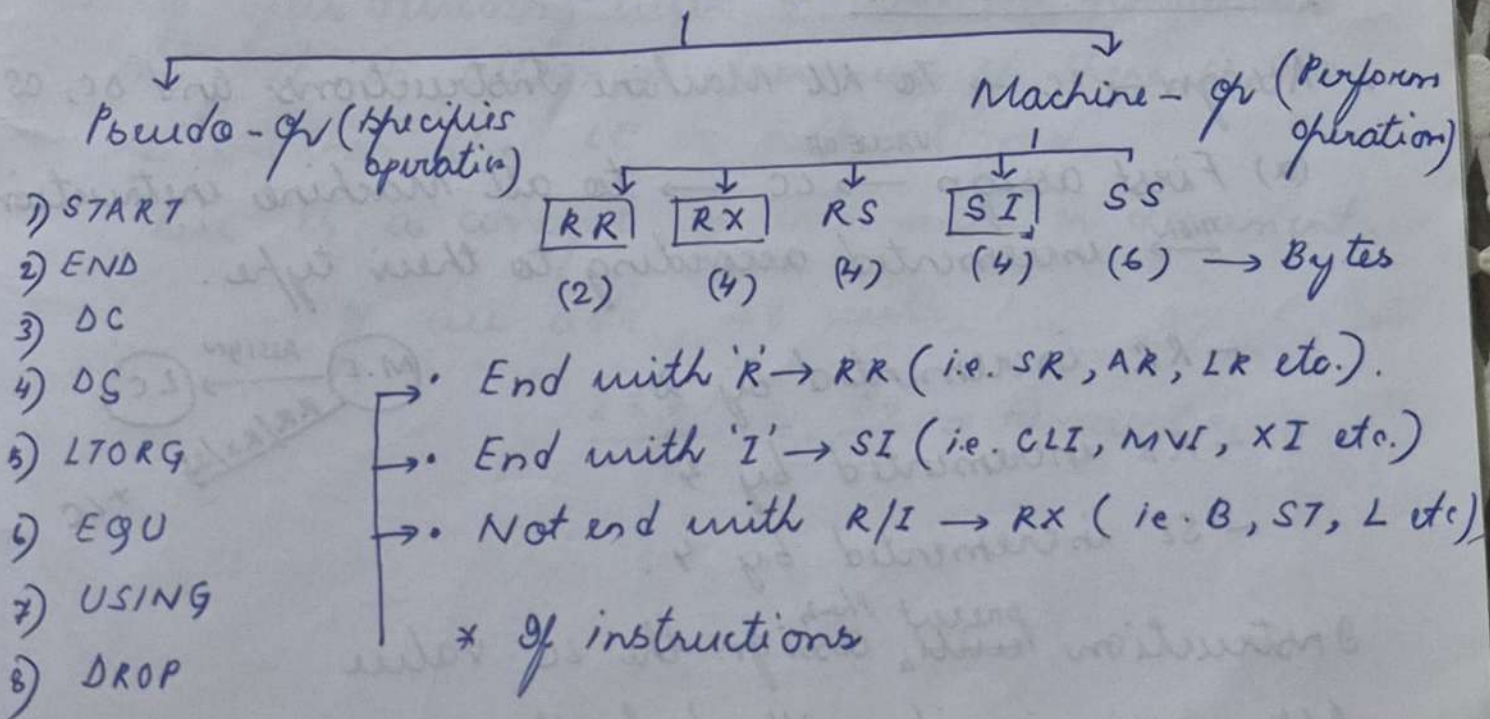 Pseudo-op (specifies operation)
Machine-op (Perform operation)
1) START
2) END
3) DC
4) DS
5) LTORG
6) EQU
7) USING
8) DROP
RR RX RS SI SS
(2) (4) (4) (4) (6) → Bytes
• End with 'R' → RR (i.e. SR, AR, LR etc.).
• End with 'I' → SI (i.e. CLI, MVI, XI etc.)
• Not end with R/I → RX (ie. B, ST, L etc)
* If instructions